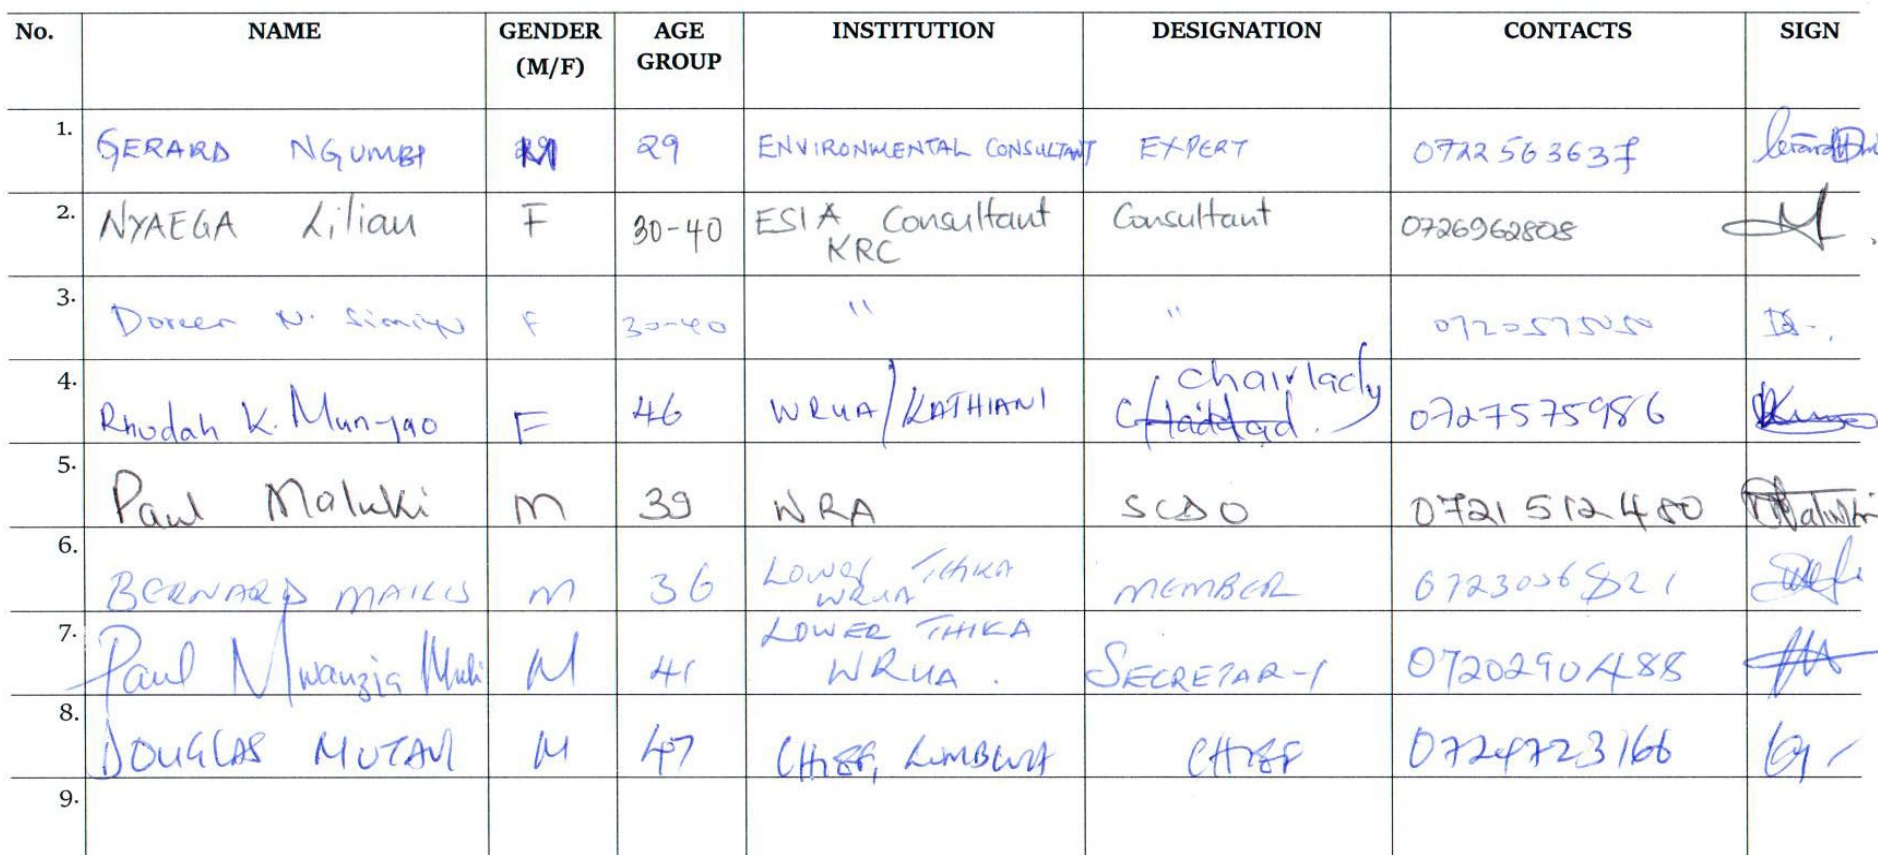 No. NAME GENDER (M/F) AGE GROUP INSTITUTION DESIGNATION CONTACTS SIGN
1. GERARD NGUMBI M 29 ENVIRONMENTAL CONSULTANT EXPERT 0722563637
2. NYAEGA Lilian F 30-40 ESIA Consultant KRC Consultant 0726962808
3. Doreen N. Simiyu F 30-40 " "
4. Rhodah K. Munyao F 46 WRUA/KATHIANI Chairlady 0727575986
5. Paul Maluki M 39 WRA SCDO 0721512480
6. BERNARD M 36 LOWER THIKA WRUA MEMBER
7. Paul Mwanzia Muli M 41 LOWER THIKA WRUA. SECRETARY 0720290488
8. DOUGLAS MUTAVI M 47 CHIEF, CHIEF 0724723166
9.